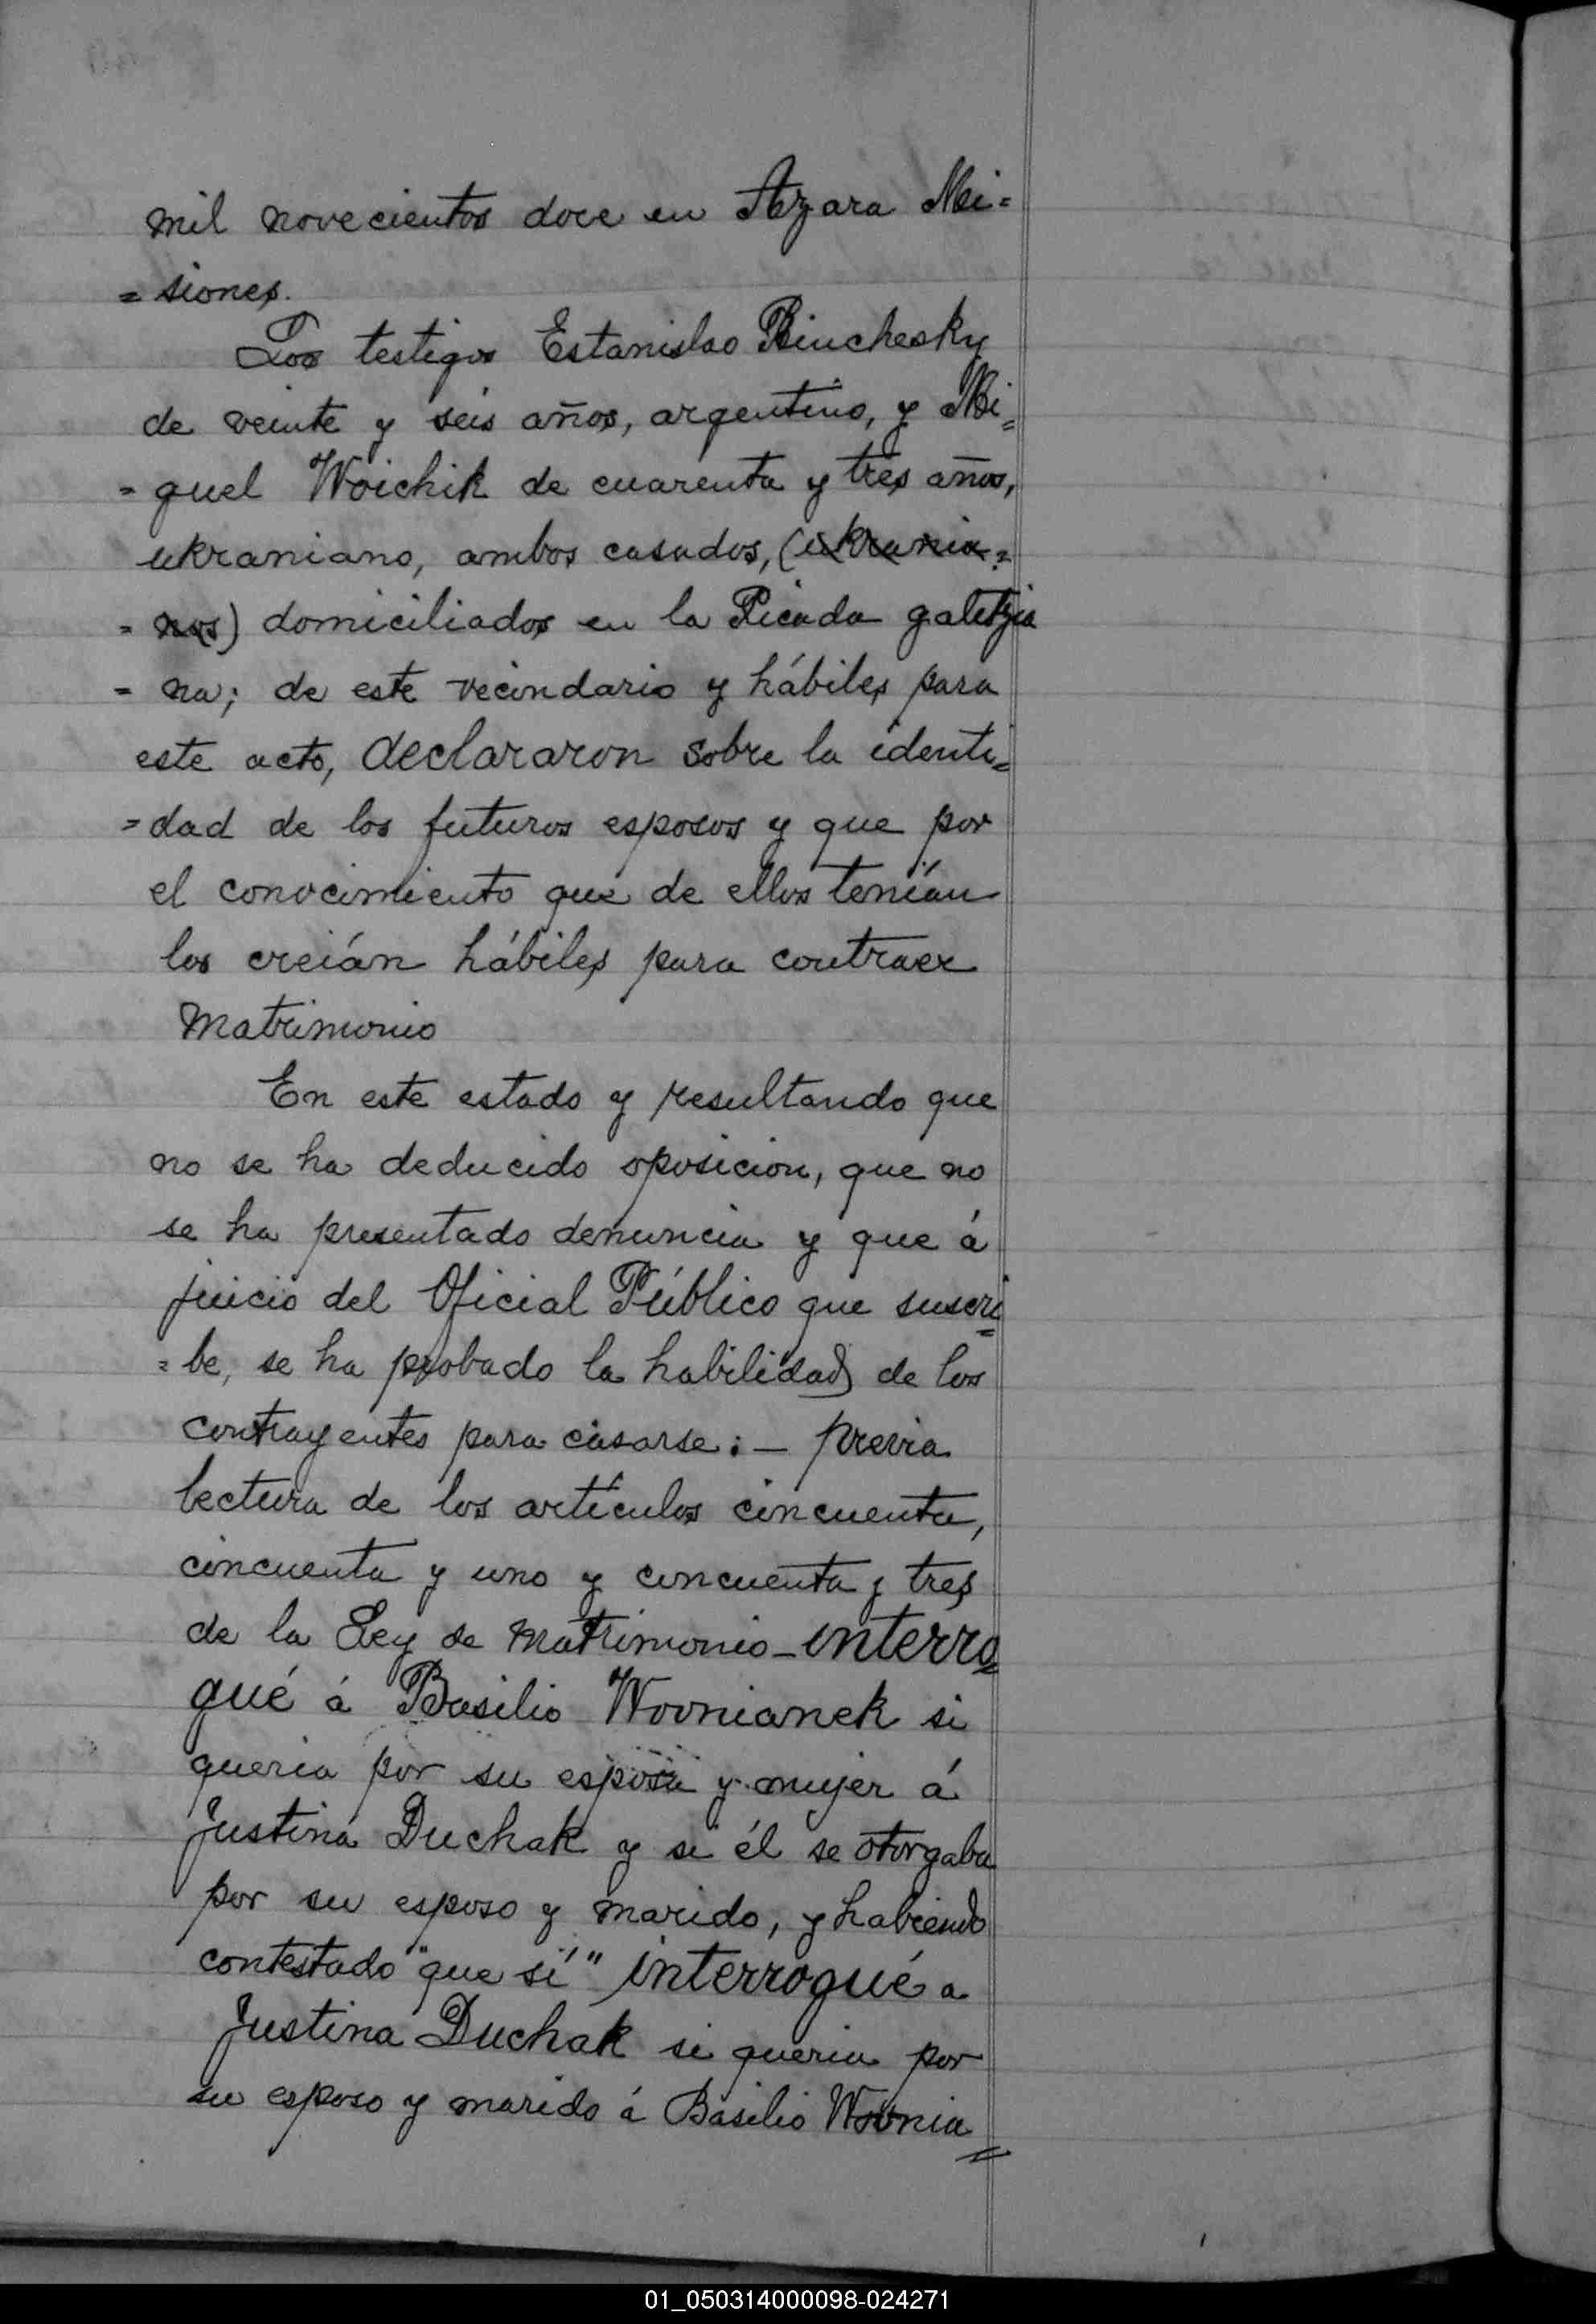 mil novecientos doce en Azara Mi=
= siones.
Los testigos Estanislao Binchesky
de veinte y seis años, argentino, y Mi=
= guel Woichik de cuarenta y tres años,
ukraniano, ambos casados, (ukrania=
= nos) domiciliados en la Picada galitzia
= na; de este vecindario y hábiles para
este acto, declararon sobre la identi=
=dad de los futuros esposos y que por
el conocimiento que de ellos tenían
los creián hábiles para contraer
Matrimonio
En este estado y resultando que
no se ha deducido oposicion, que no
se ha presentado denuncia y que á
juicio del Oficial Público que suscri
= be, se ha probado la habilidad de los
contrayentes para casarse: — previa
lectura de los artículos cincuenta,
cincuenta y uno y cincuenta y tres
de la Ley de Matrimonio — interro=
gué á Basilio Wovnianek si
queria por su esposa y mujer á
Justina Duchak y si él se otorgaba
por su esposo y marido, y habiendo
contestado "que sí" interrogué a
Justina Duchak si queria por
su esposo y marido á Basilio Wovnia=
01_050314000098-024271